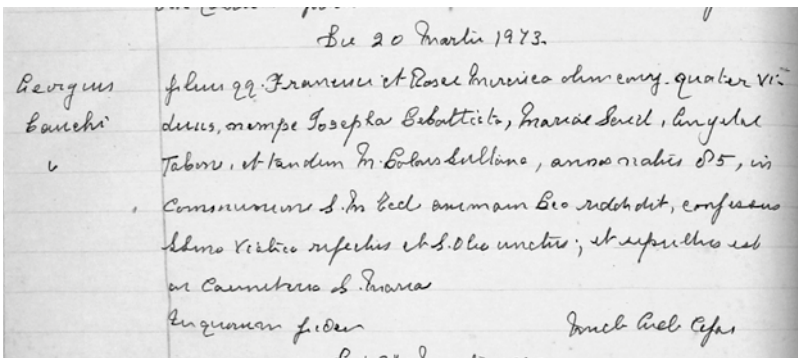 Die 20 Martii 1973.
Georgius filius qq. Francisci et Rosae olim conj. quater vi-
Cauchi duus, nempe Josepha Debattista, Mariae Saed, Angelae
Tabone, et tandem M. Sultana, annos natus 85, in
Communione S. M. Eccl. animam Deo reddidit, confessus
SSmo Viatico refectus et S. Oleo unctus; et sepultus est
in Caemeterio S. Maria
In quorum fidem